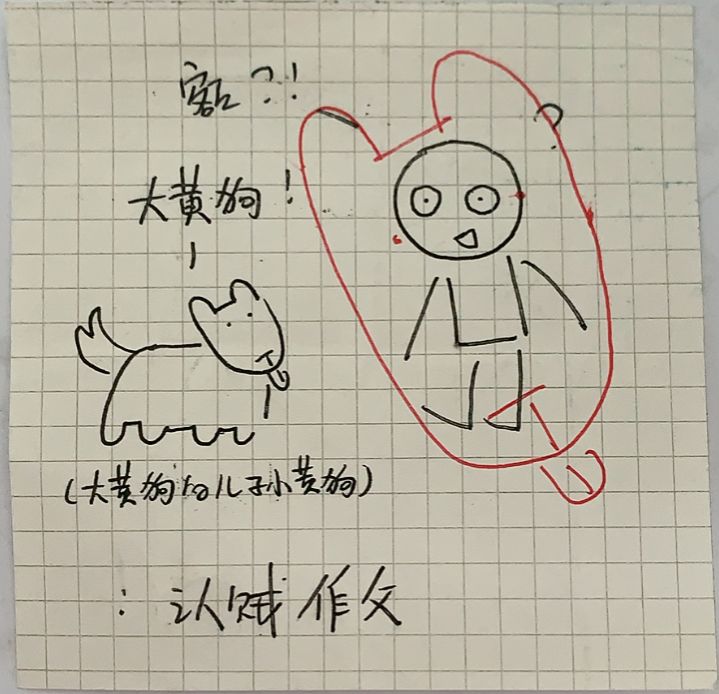 ?!
大黄狗!
(大黄狗的儿子小黄狗)
:认贼作父